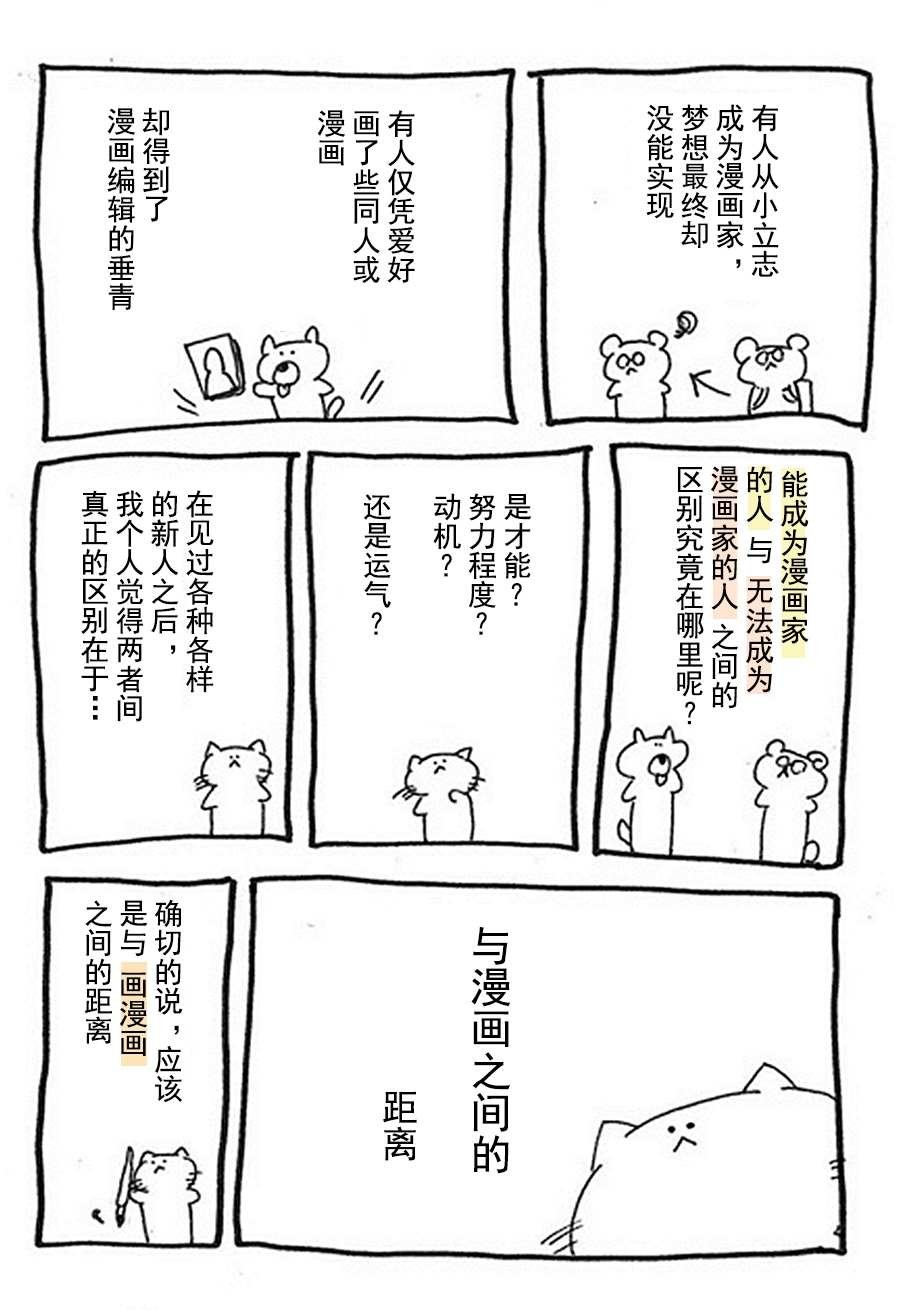 有人从小立志
成为漫画家，
梦想最终却
没能实现
有人仅凭爱好
画了些同人或
漫画
却得到了
漫画编辑的垂青
能成为漫画家
的人 与 无法成为
漫画家的人 之间的
区别究竟在哪里呢？
是才能？
努力程度？
动机？
还是运气？
在见过各种各样
的新人之后，
我个人觉得两者间
真正的区别在于…
与漫画之间的
距离
确切的说，应该
是与 画漫画
之间的距离